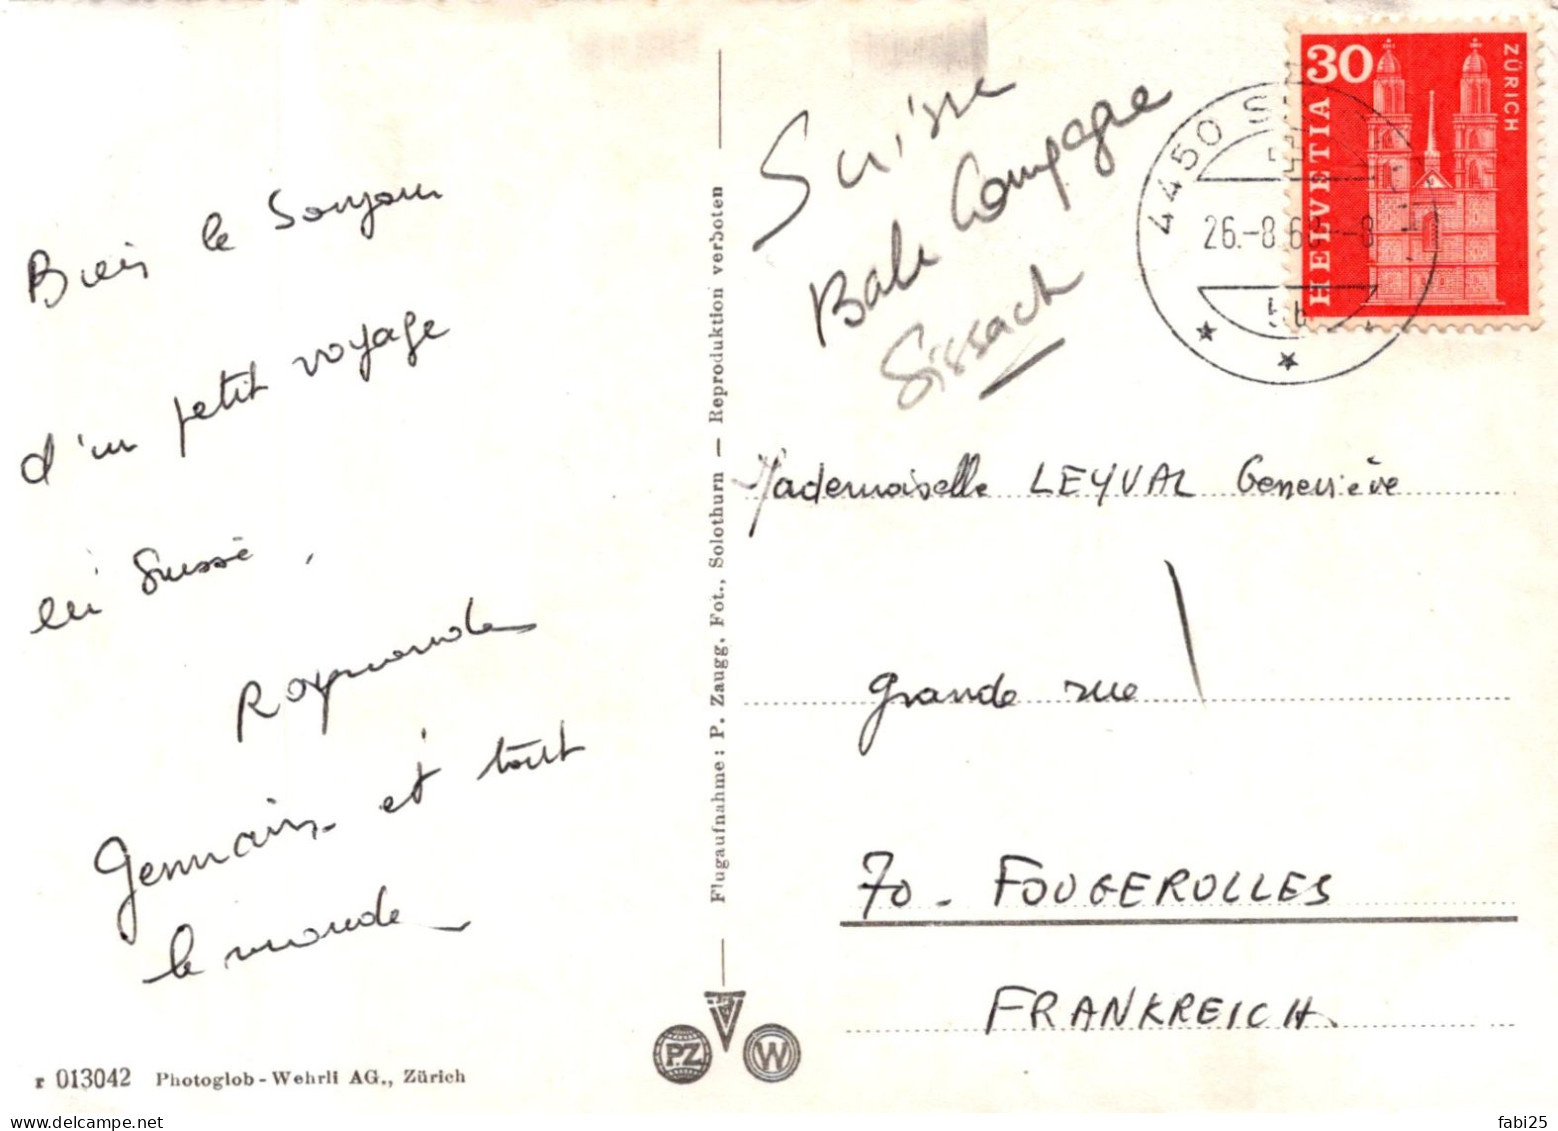 Bien le bonjour
d'un petit voyage
en Suisse,
Raymonde
Germain et tout
le monde
r 013042 Photoglob-Wehrli AG., Zürich
Flugaufnahme: P. Zaugg, Fot., Solothurn — Reproduktion verboten
PZ
W
Suisse
Bale Campagne
Sissach
30
HELVETIA
ZÜRICH
4450
26.-8.6 -8
Mademoiselle LEYVAL Geneviève
grande rue
70 - FOUGEROLLES
FRANKREICH.
fabi25